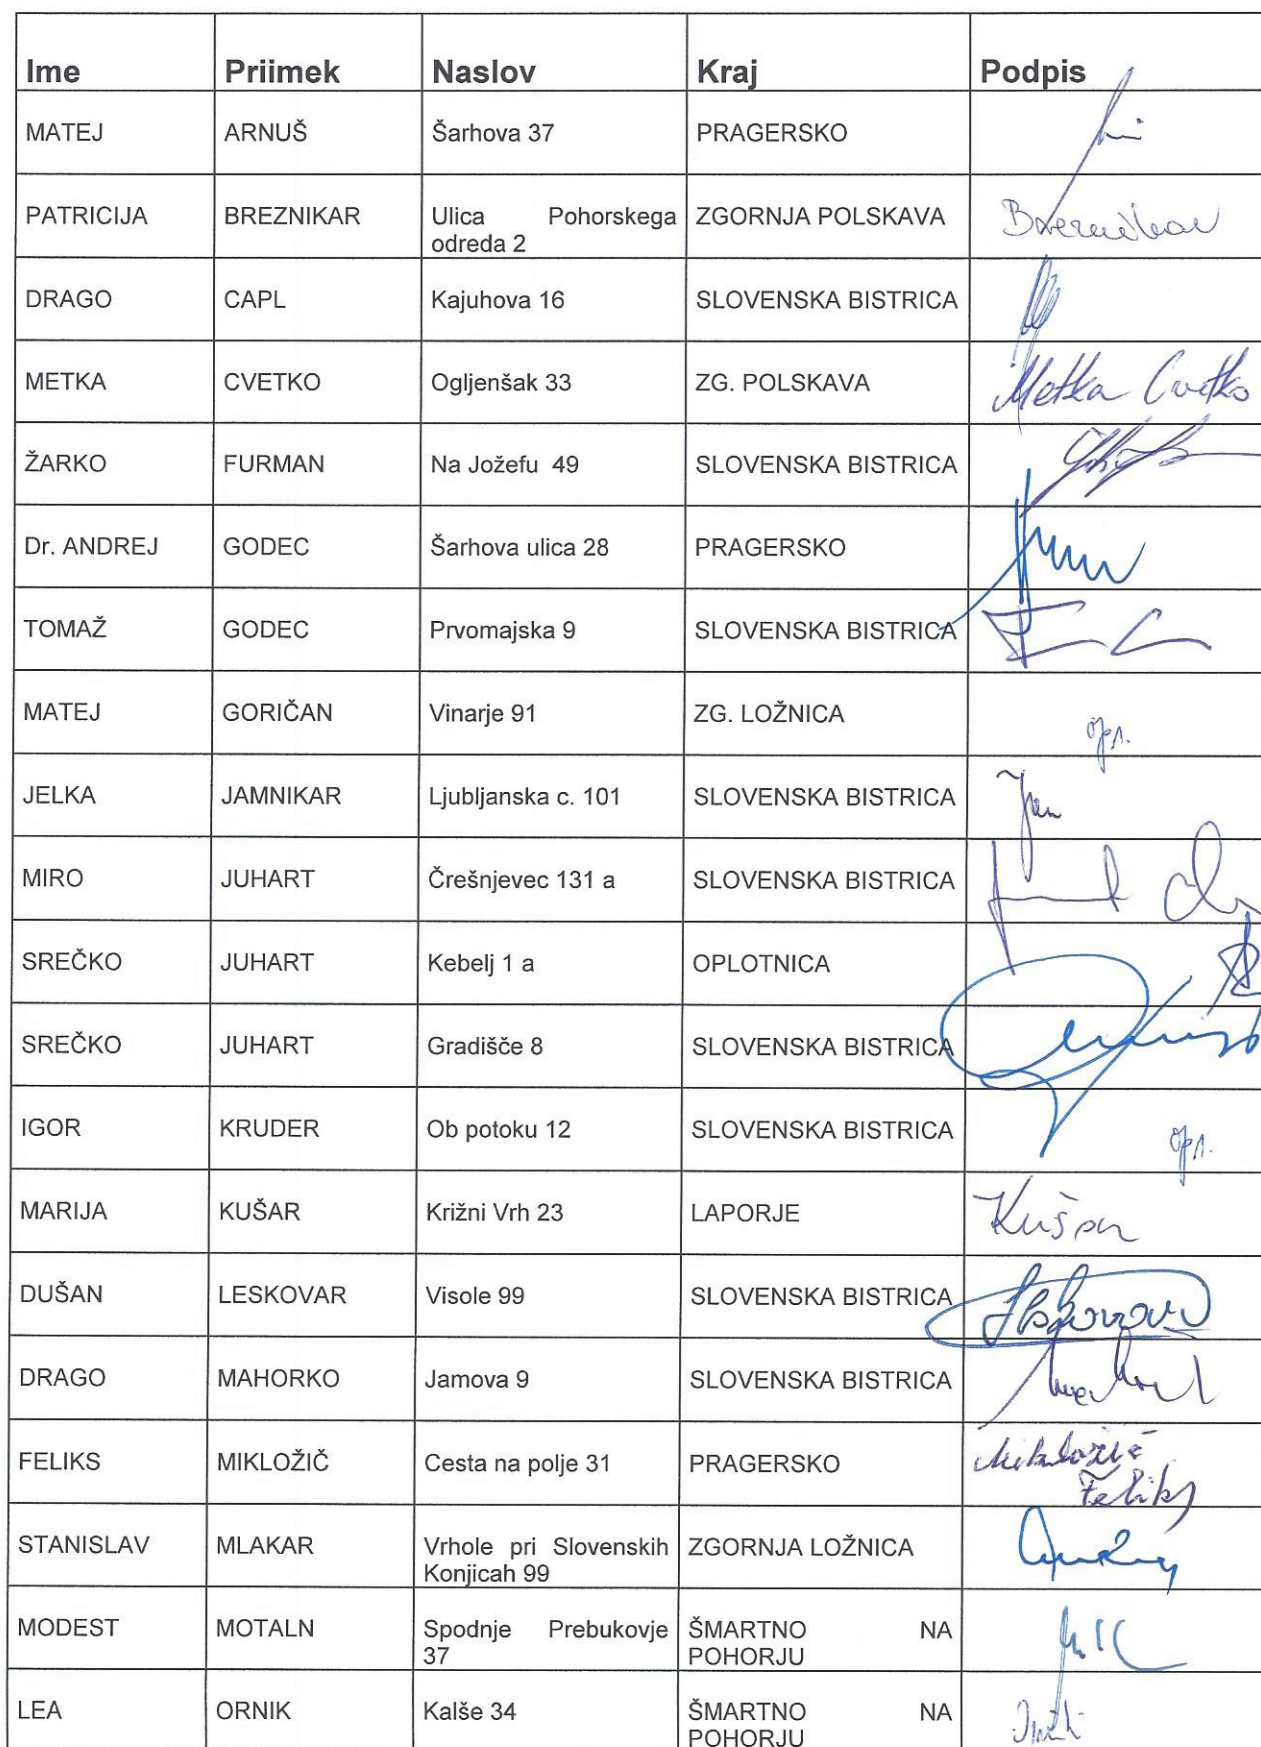 Ime Priimek Naslov Kraj Podpis
MATEJ ARNUŠ Šarhova 37 PRAGERSKO
PATRICIJA BREZNIKAR Ulica Pohorskega ZGORNJA POLSKAVA Breznikar
odreda 2
DRAGO CAPL Kajuhova 16 SLOVENSKA BISTRICA
METKA CVETKO Ogljenšak 33 ZG. POLSKAVA Metka Cvetko
ŽARKO FURMAN Na Jožefu 49 SLOVENSKA BISTRICA
Dr. ANDREJ GODEC Šarhova ulica 28 PRAGERSKO
TOMAŽ GODEC Prvomajska 9 SLOVENSKA BISTRICA
MATEJ GORIČAN Vinarje 91 ZG. LOŽNICA opr.
JELKA JAMNIKAR Ljubljanska c. 101 SLOVENSKA BISTRICA
MIRO JUHART Črešnjevec 131 a SLOVENSKA BISTRICA
SREČKO JUHART Kebelj 1 a OPLOTNICA
SREČKO JUHART Gradišče 8 SLOVENSKA BISTRICA
IGOR KRUDER Ob potoku 12 SLOVENSKA BISTRICA opr.
MARIJA KUŠAR Križni Vrh 23 LAPORJE Kušar
DUŠAN LESKOVAR Visole 99 SLOVENSKA BISTRICA
DRAGO MAHORKO Jamova 9 SLOVENSKA BISTRICA
FELIKS MIKLOŽIČ Cesta na polje 31 PRAGERSKO Mikložič
Feliks
STANISLAV MLAKAR Vrhole pri Slovenskih ZGORNJA LOŽNICA
Konjicah 99
MODEST MOTALN Spodnje Prebukovje ŠMARTNO NA
37 POHORJU
LEA ORNIK Kalše 34 ŠMARTNO NA
POHORJU